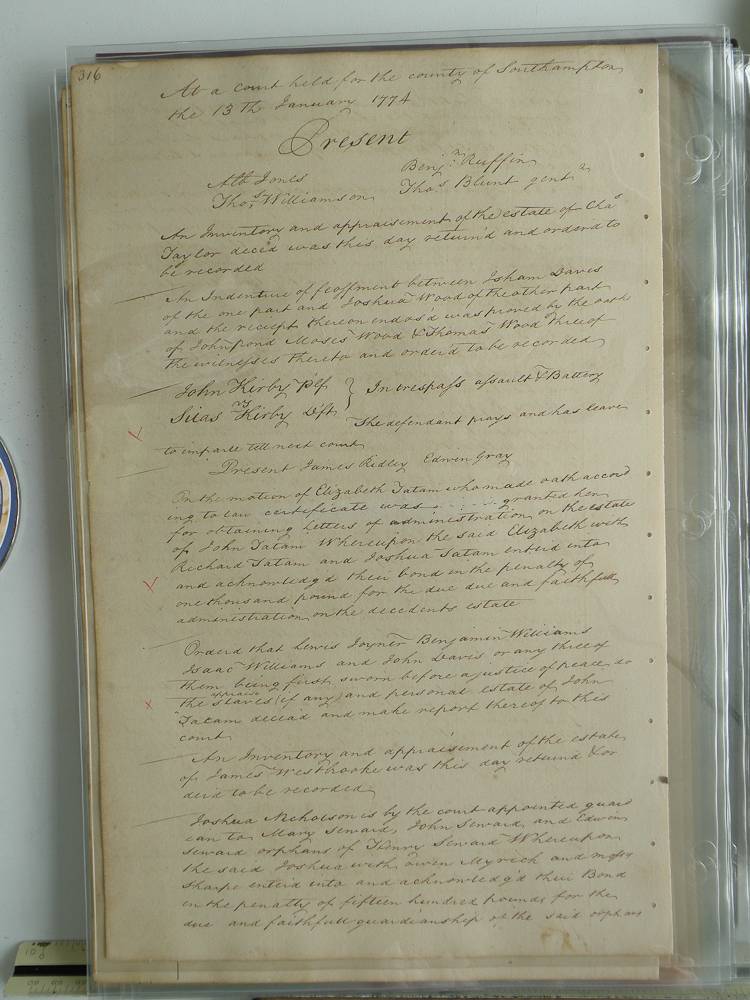 316
At a court held for the county of Southampton
the 13th January 1774
Present
Alb Jones Benjn. Ruffin
Thos. Williamson Thos. Blunt gentn
An Inventory and appraisement of the estate of Chas
Taylor decēd was this day return'd and orderd to
be recorded
An Indenture of feoffment between Isham Davis
of the one part and Joshua Wood of the other part
and the receipt thereon endosd was proved by the oath
of John pond Moses Wood & Thomas Wood three of
the witnesses thereto and order'd to be recorded
John Kirby Plf } In trespass assault & Battery
vs
Silas Kirby Dft The defendant prays and has leave
to imparle tell next court
Present James Ridley Edwin Gray
On the motion of Elizabeth Tatam who made oath accord
ing to law certificate was . . . . . . granted her
for obtaining letters of administration on the estate
of John Tatam Whereupon the said Elizabeth with
Richard Tatam and Joshua Tatam enterd into
and acknowledgd their bond in the penalty of
one thousand pound for the due due and faithfull
administration on the decedents estate
Orderd that Lewis Joyner Benjamin Williams
Isaac Williams and John Davis or any three of
them being first sworn before a justice of peace do
appraise
the slaves (if any) and personal estate of John
Tatam deceasd and make report thereof to this
court
An Inventory and appraisement of the estate
of James Westbrooke was this day returnd & or
derd to be recorded
Joshua Nicholson is by the court appointed guard
ean to Mary Seward, John Seward, and Edwin
Seward orphans of Henry Seward Whereupon
the said Joshua with Owen Myrick and
Sharpe enterd into and acknowledg'd their Bond
in the penalty of fifteen hundred pounds for the
due and faithfull guardianship of the said orphans